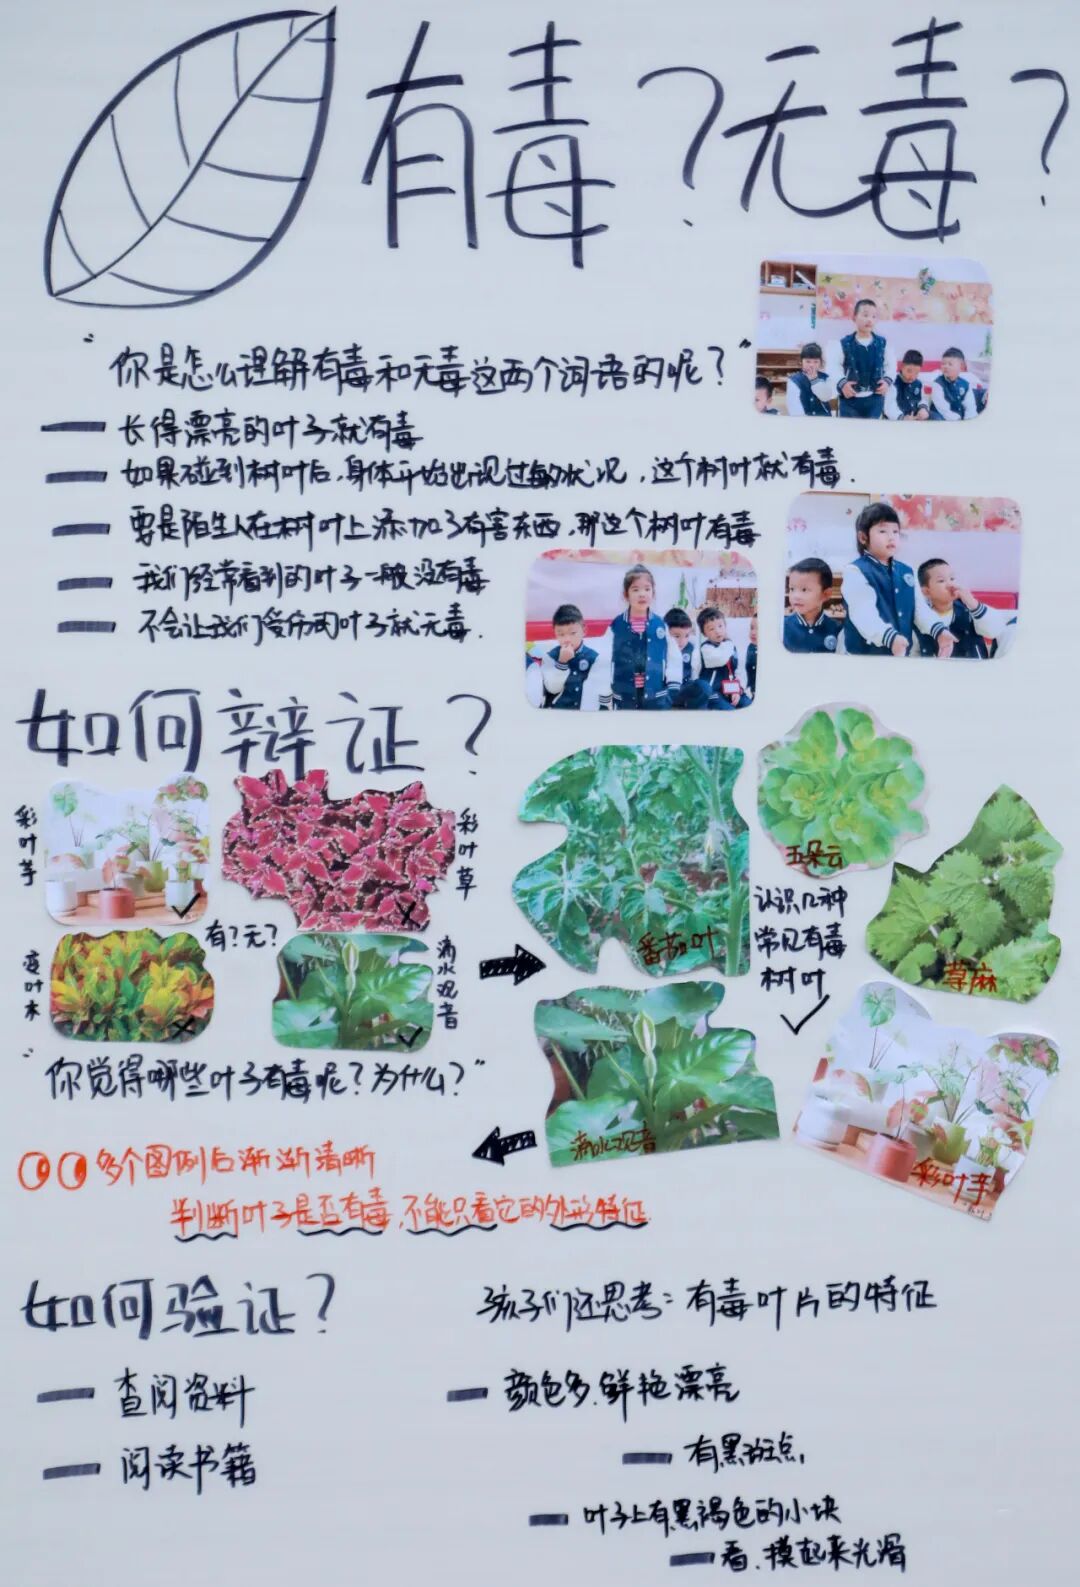 有毒？无毒？
“你是怎么理解有毒和无毒这两个词语的呢？”
— 长得漂亮的叶子就有毒
— 如果碰到树叶后，身体开始出现过敏状况，这个树叶就有毒.
— 要是陌生人在树叶上添加了有害东西，那这个树叶有毒
— 我们经常看到的叶子一般没有毒
— 不会让我们受伤的叶子就无毒.
如何辩证？
彩叶芋
彩叶草
有？无？
变叶木
滴水观音
“你觉得哪些叶子有毒呢？为什么？”
五朵云
番茄叶
认识几种
常见有毒
树叶
荨麻
滴水观音
彩叶芋
多个图例后渐渐清晰
判断叶子是否有毒，不能只看它的外形特征.
如何验证？
— 查阅资料
— 阅读书籍
孩子们还思考：有毒叶片的特征
— 颜色多、鲜艳漂亮
— 有黑斑点，
— 叶子上有黑褐色的小块
— 看、摸起来光滑